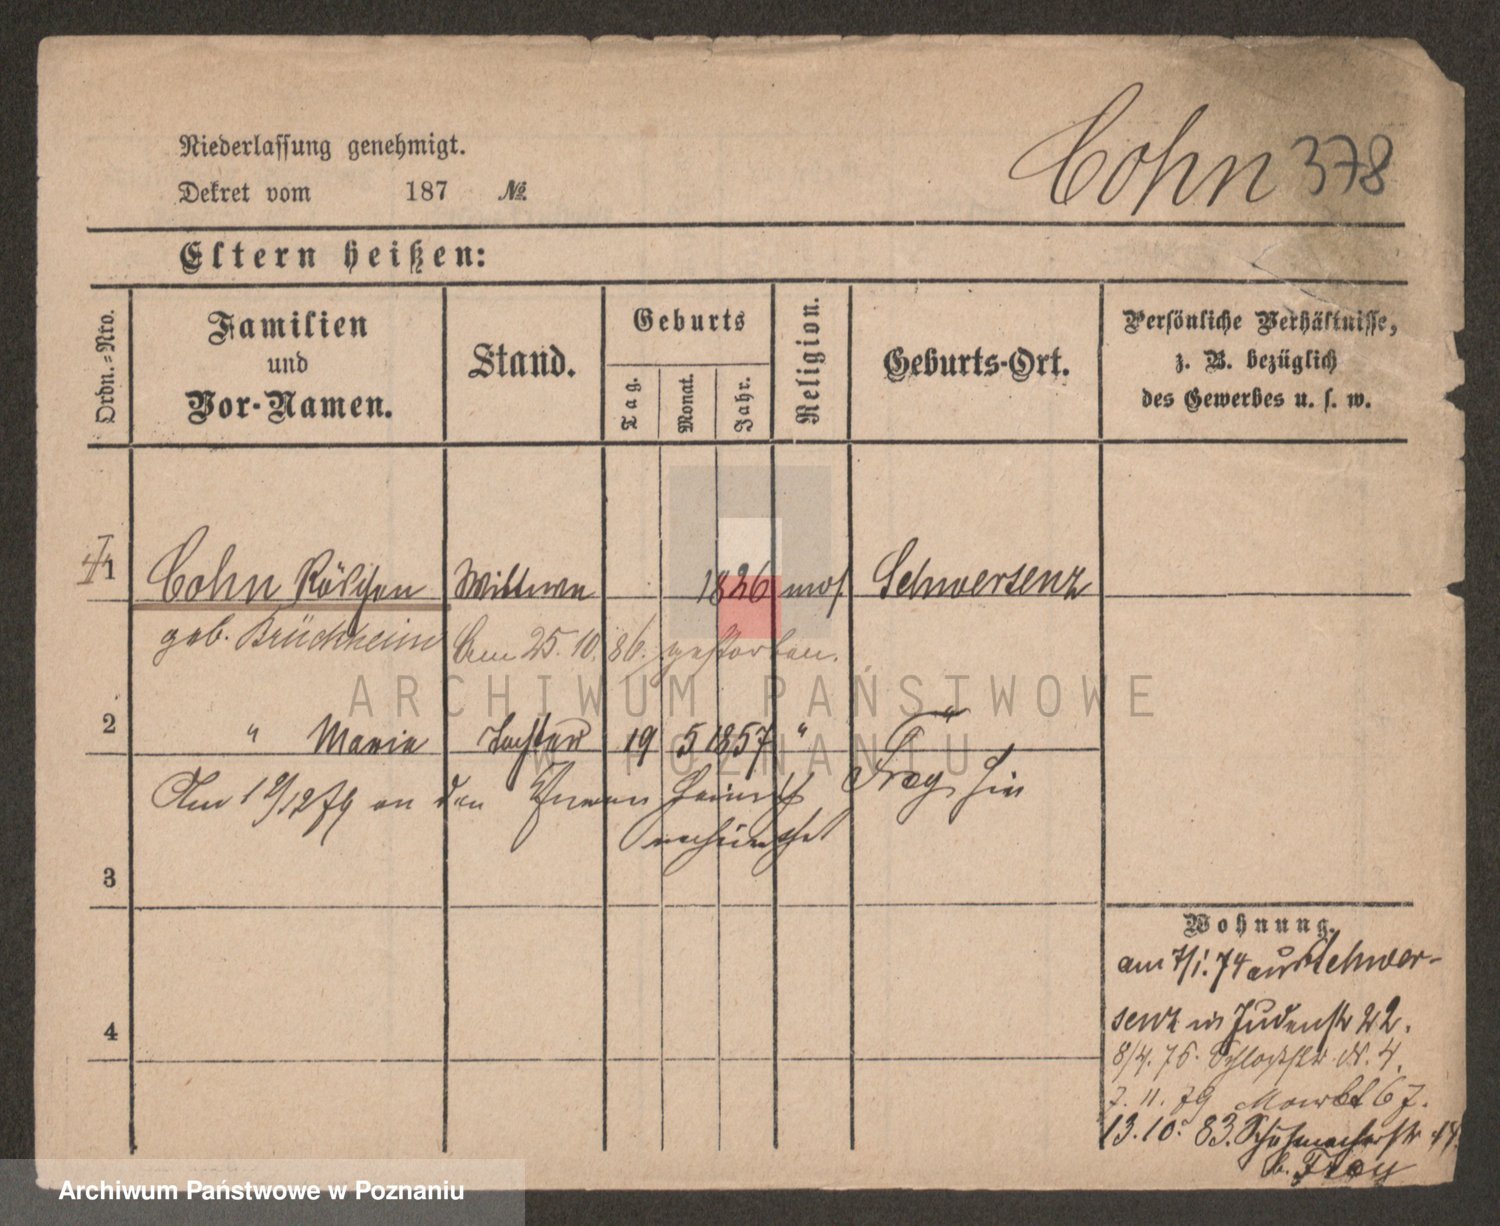 Niederlassung genehmigt.
Cohn 378
Dekret vom 187 №
Eltern heißen:
Ordn.-Nro.
Familien
und
Vor-Namen.
Stand.
Geburts
Tag.
Monat.
Jahr.
Religion.
Geburts-Ort.
Persönliche Verhältnisse,
z. B. bezüglich
des Gewerbes u. s. w.
1 Cohn Röschen Wittwe 1826 mos Schwersenz
geb. Brückheim Am 25.10.86. gestorben.
ARCHIWUM PAŃSTWOWE
W POZNANIU
2 " Marie Tochter 19 5 1857 " "
Am 12/79 an den
3
Wohnung.
am 7/1.74 aus Schwer-
senz in Judenstr 22.
4
8/4.75. Schloßstr N. 4.
7.11.79 Markt 67.
13.10.83. Schuhmacherstr 14.
b.
Archiwum Państwowe w Poznaniu